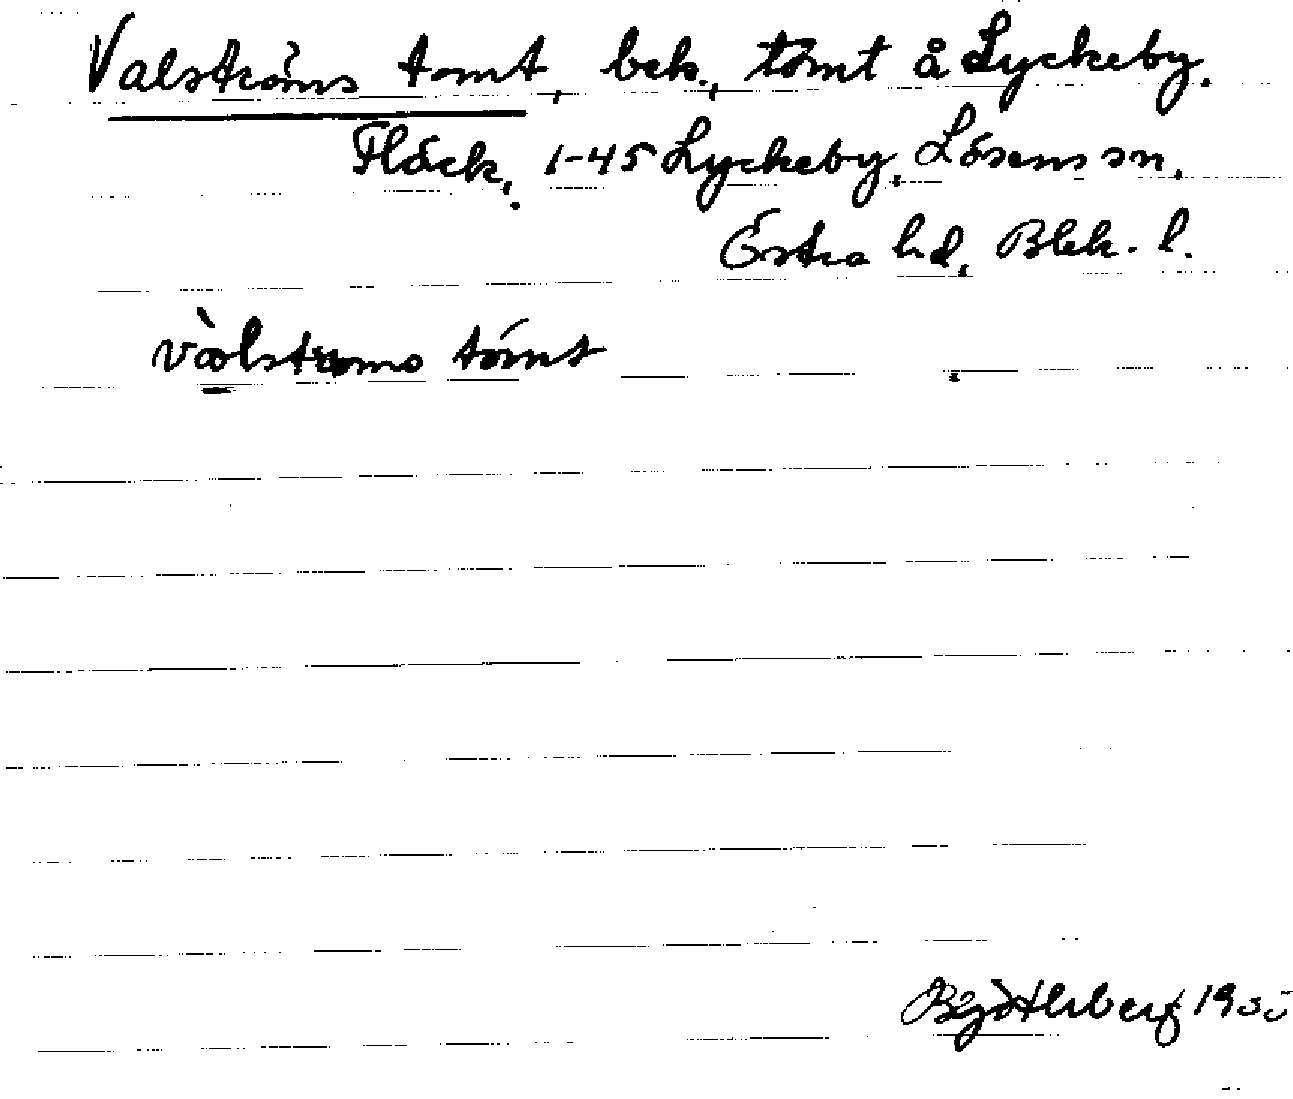 Valströms tomt, bek., tomt å Lyckeby.
Fläck, 1-45 Lyckeby, Lösens sn,
Östra hd, Blek. l.
vàlstroms tómt